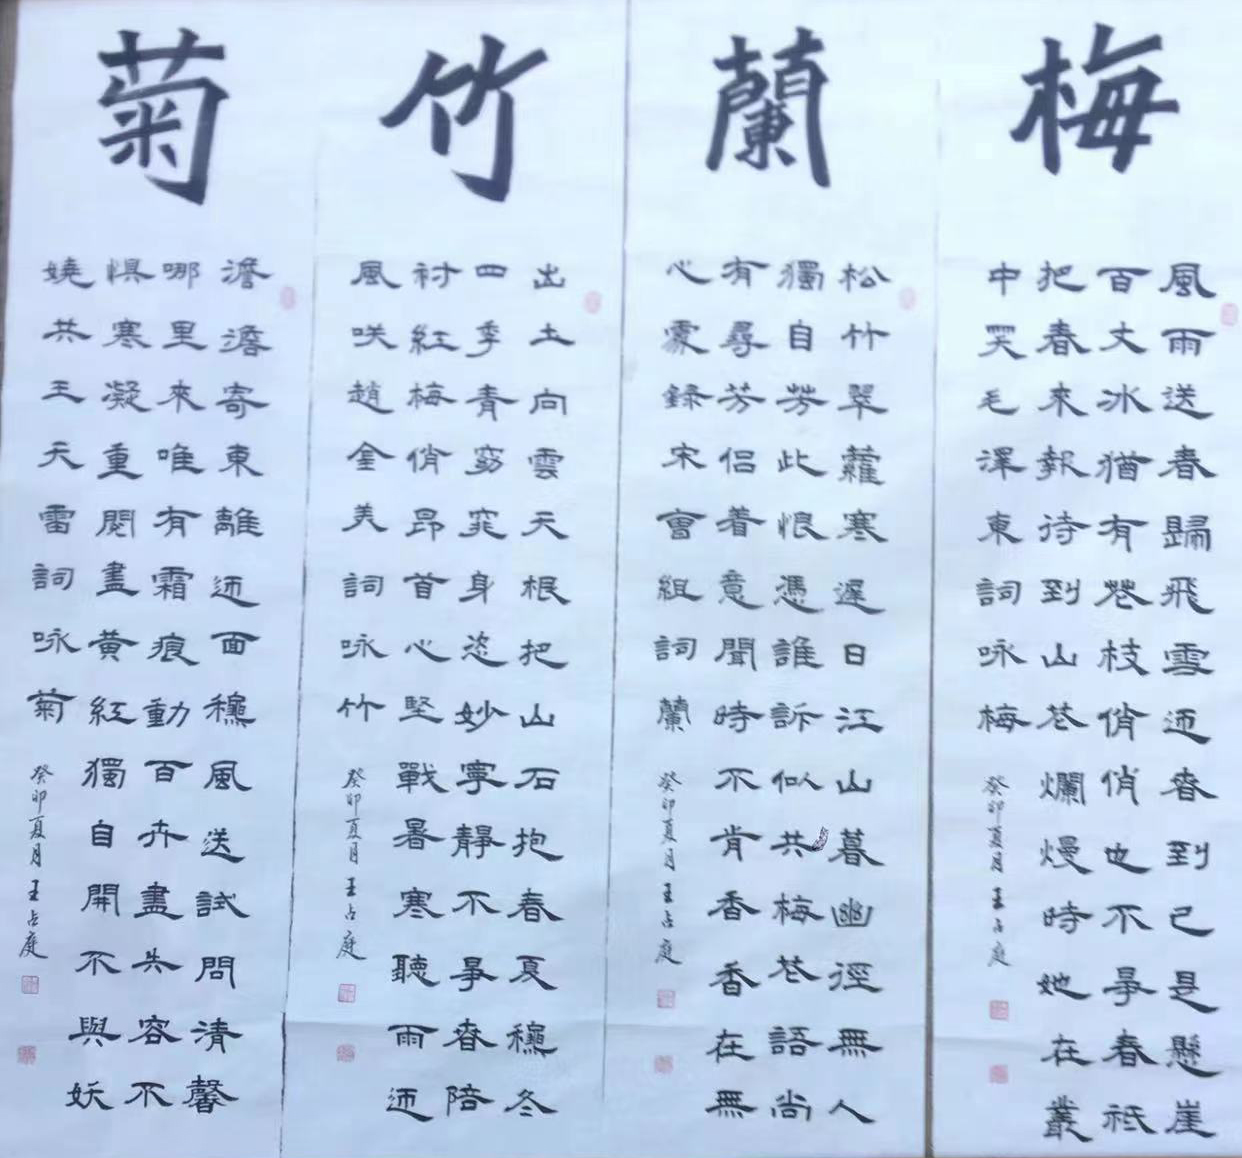 梅
風雨送春歸飛雪迊春到已是懸崖
百丈冰猶有花枝俏俏也不爭春祗
把春來報待到山花爛熳時她在叢
中笑毛澤東詞咏梅
癸卯夏月王占庭
蘭
松竹翠蘿寒遲日江山暮幽徑無人
獨自芳此恨憑誰訴似共梅花語尚
有尋芳侣着意聞時不肯香香在無
心處錄宋曹組詞蘭
癸卯夏月王占庭
竹
出土向雲天根把山石抱春夏穐冬
四季青窈窕身恣妙寧靜不爭春陪
衬紅梅俏昂首心堅戰暑寒聽雨迊
風咲趙金美詞咏竹
癸卯夏月王占庭
菊
澹澹寄東離迊面穐風送試問清馨
哪里來唯有霜痕動百卉盡失容不
惧寒凝重閲盡黄紅獨自開不與妖
嬈共王天雷詞咏菊
癸卯夏月王占庭